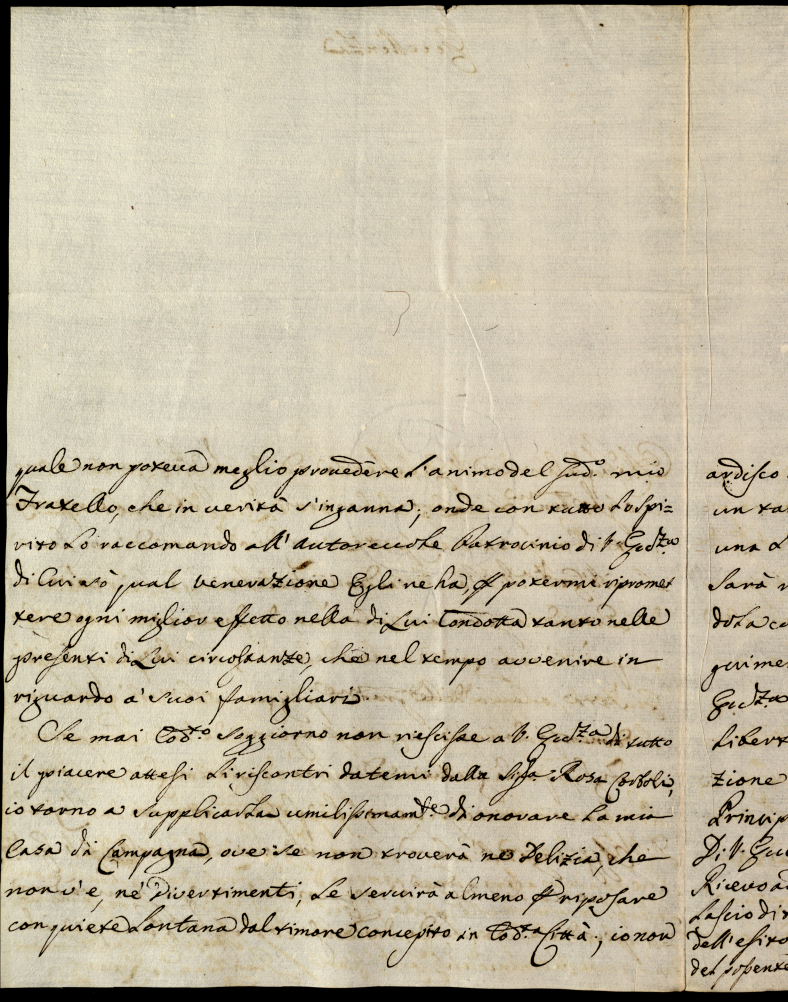 quale non potecua meglio provedere L'animo del sud.º mio
Fratello, che in verità s'inganna; onde con tutto Lo spi=
rito Lo raccomando all' autorevole Patrocinio di V. Ecc.za
di Cui sò qual venerazione Egli ne ha, potermi ripromet
tere ogni miglior effetto nella di Lui Condotta tanto nelle
presenti di Lui circostanze, che nel tempo avvenire in
riguardo a' suoi famigliari.
Se mai Cod.to soggiorno non riescisse a V. Ecc.za di tutto
il piacere attesi Li riscontri datemi dalla Sig.ra Rosa Corboli,
io torno a supplicarLa umilissimam.te di onorare La mia
Casa di Campagna, ove se non troverà nè Delizia, che
non v'è, nè Divertimenti, Le servirà almeno riposare
con quiete Lontana dal timore concepito in Cod.ta Città; io non
ardisco
un ta
una L
Sarà
dota co
guime
Ecc.za
Libert
zione
Princip
Di V. Ecc
Ricevo a
Lascio di
dell'esito